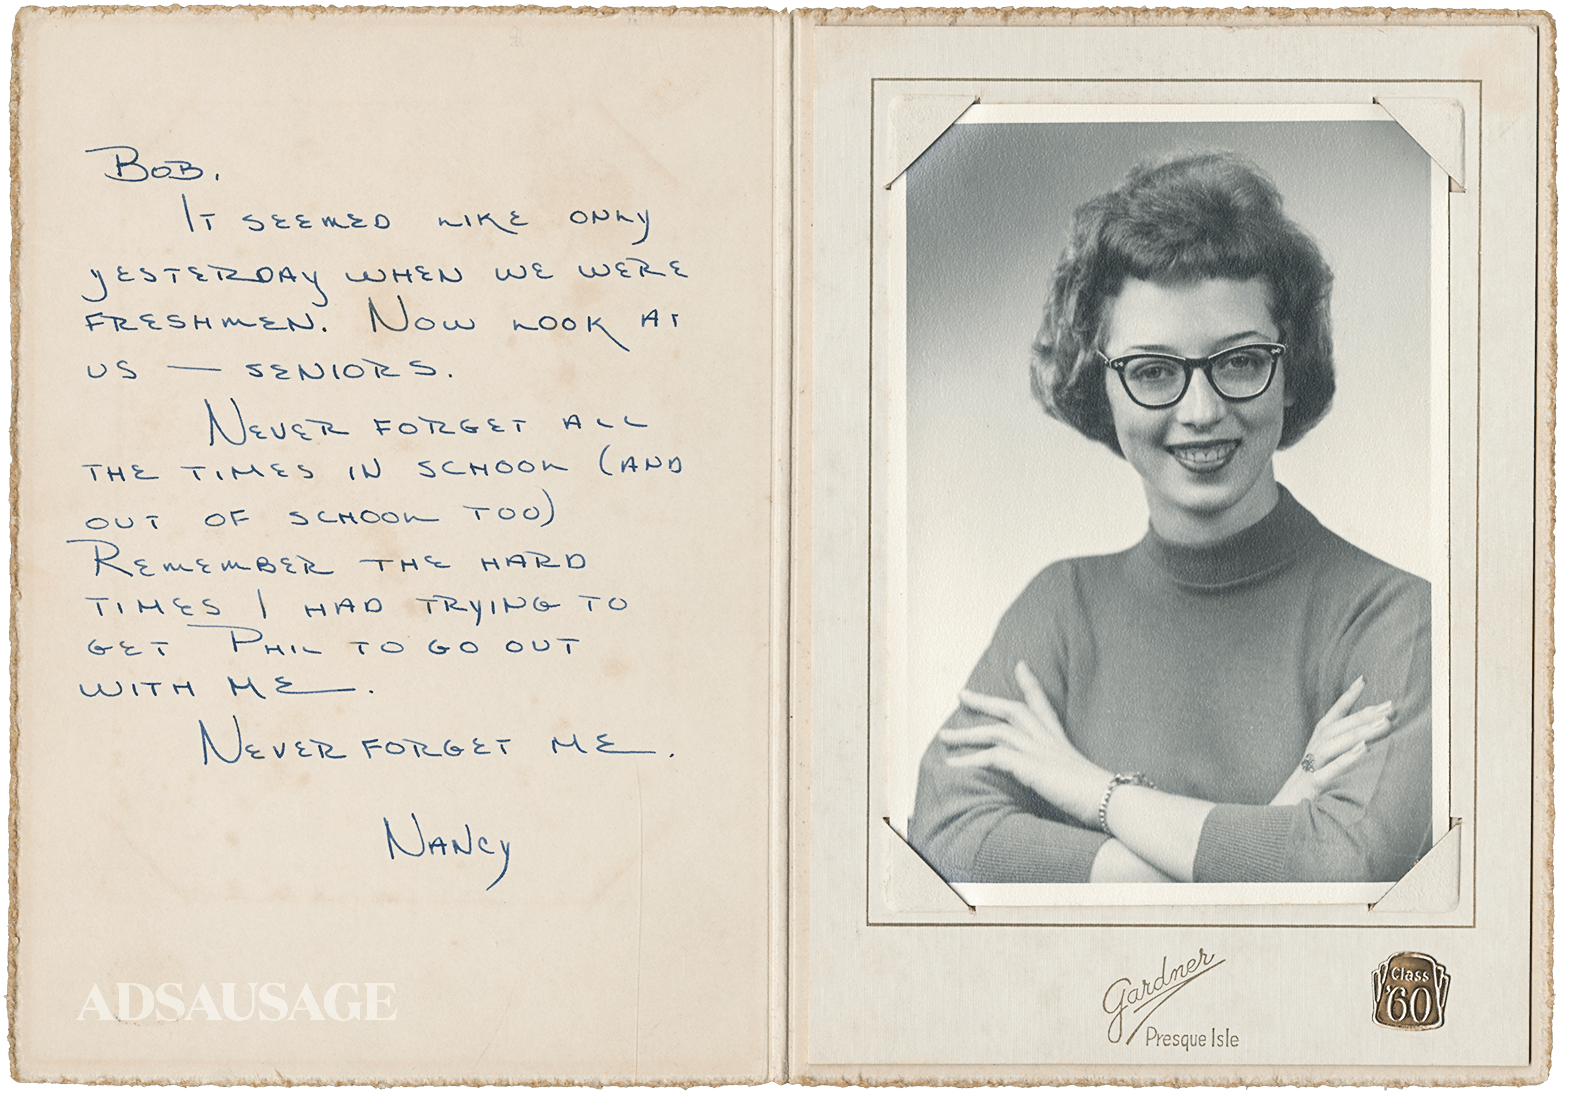 Bob.
It seemed like only
yesterday when we were
freshmen. Now look at
us — seniors.
Never forget all
the times in school (and
out of school too)
Remember the hard
times I had trying to
get Phil to go out
with me.
Never forget me.
Nancy
ADSAUSAGE
Gardner
Presque Isle
Class
'60